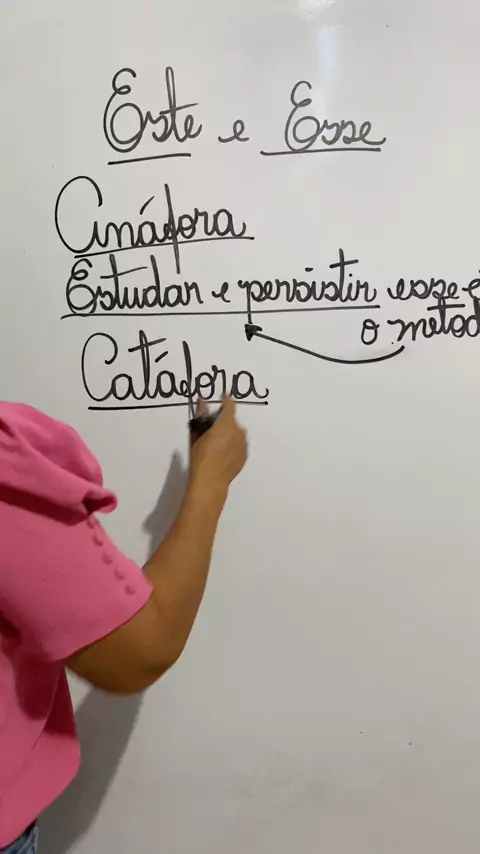 Este e Esse
Anáfora
Estudar e persistir esse é
o metod
Catáfora